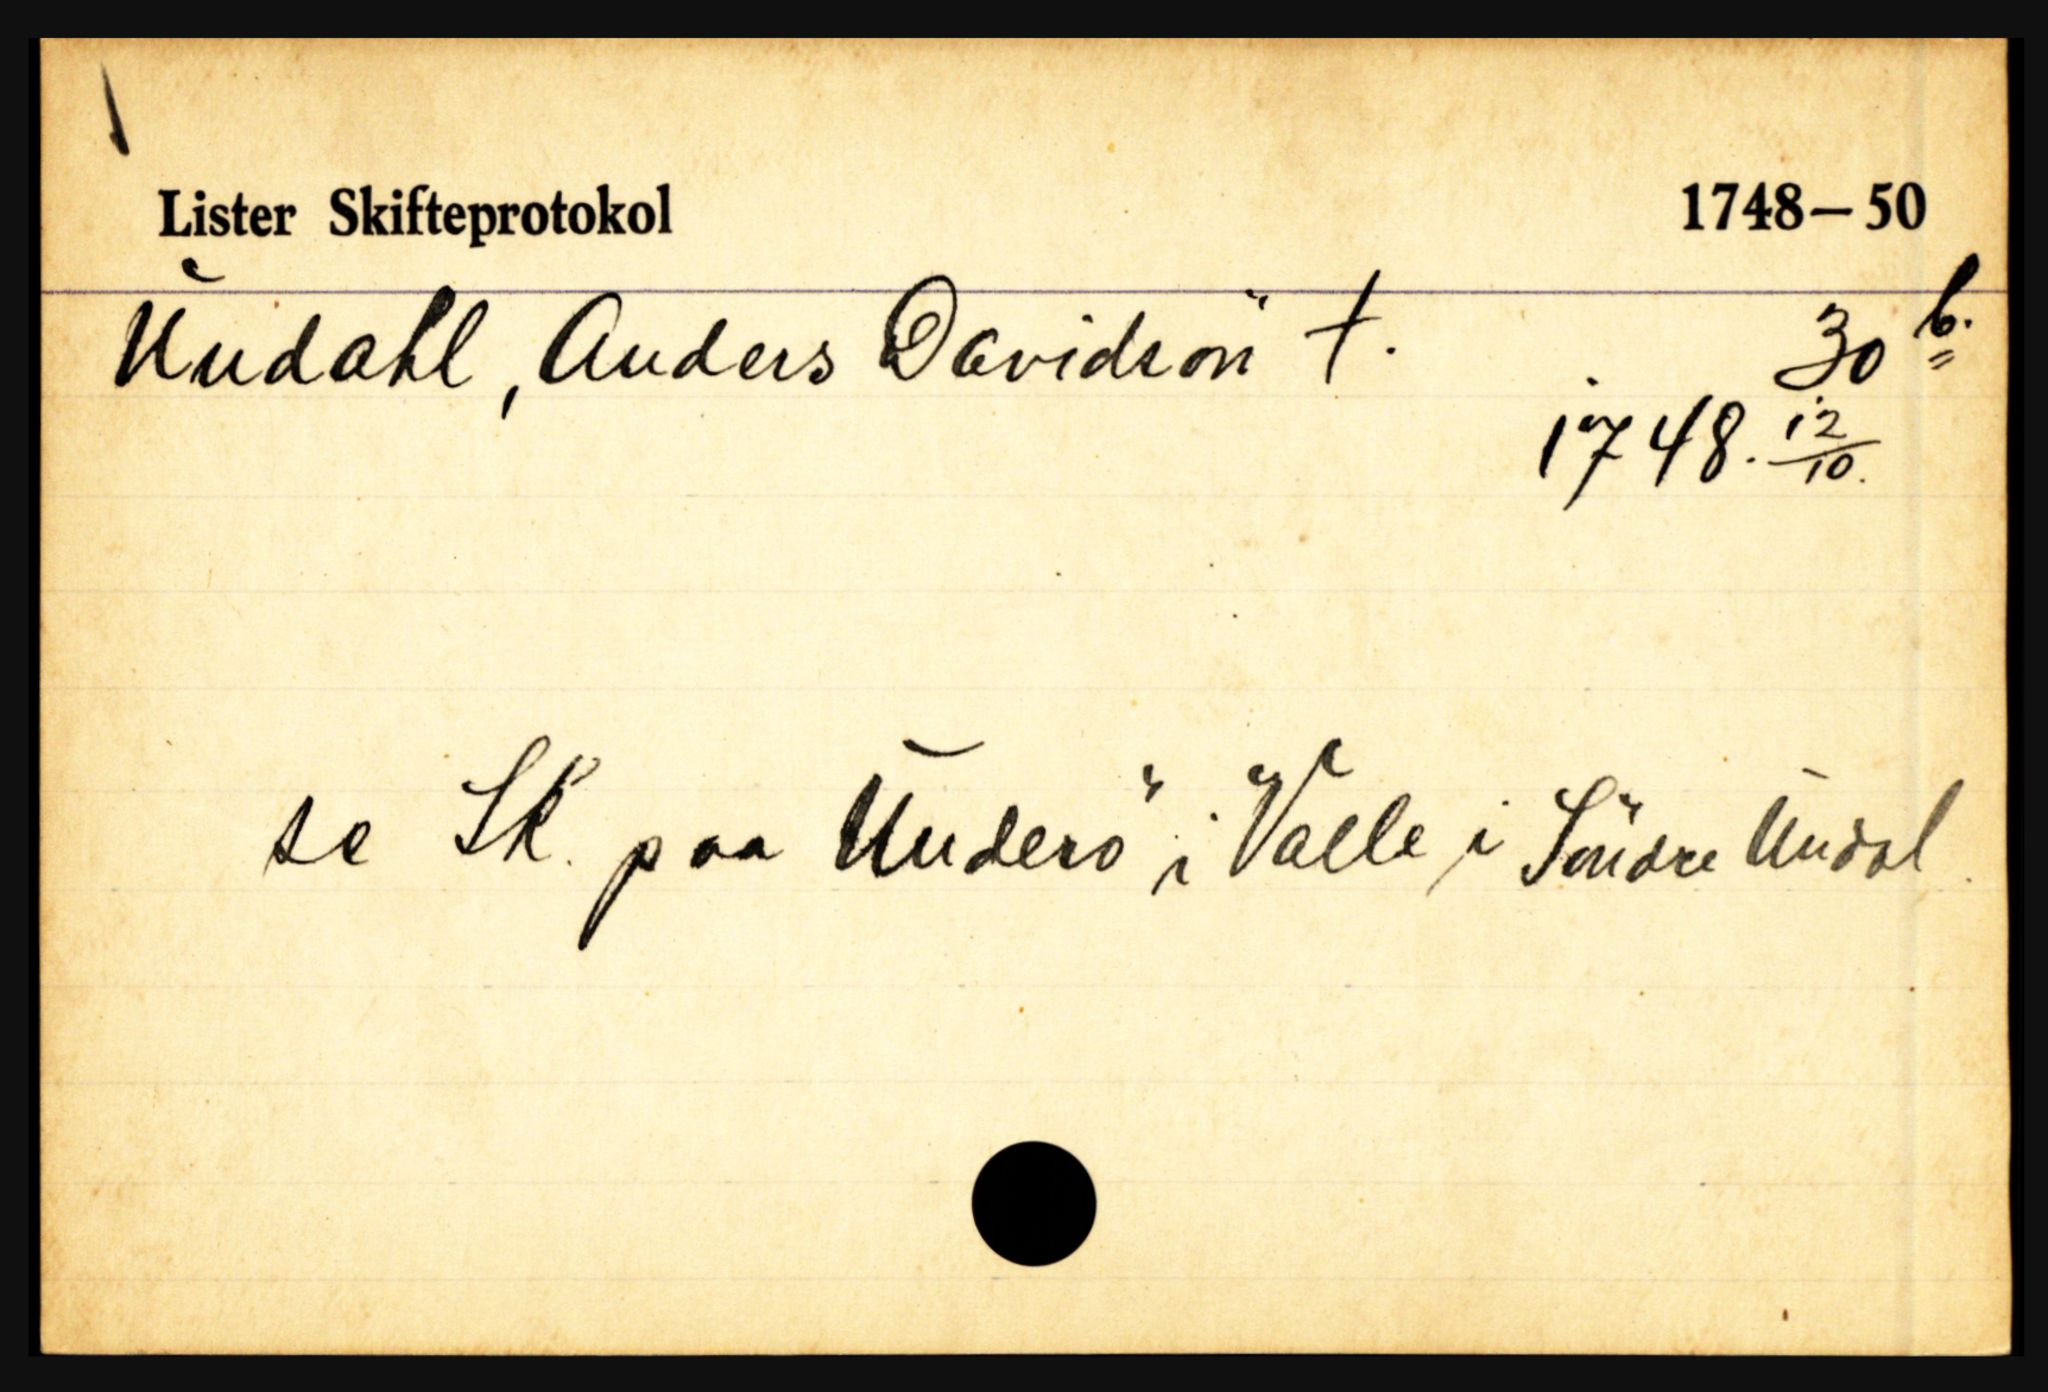 Lister Skifteprotokol 1748—50
Undahl, Anders Davidsön †. 30 b.
1748. 12/10.
se Sk. paa Underö i Valle i Söndre Undal.